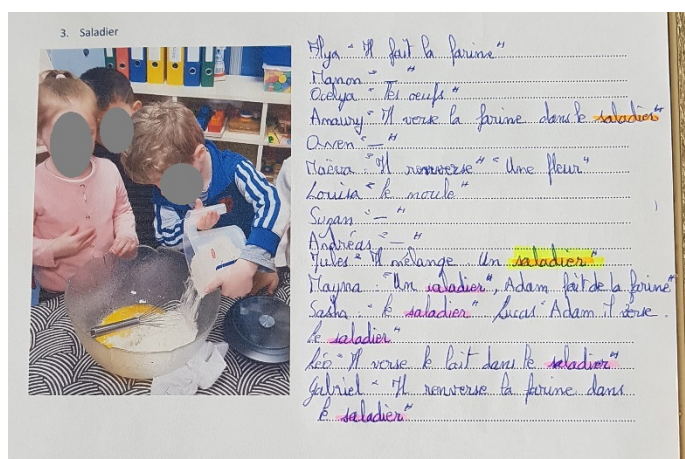 3. Saladier
Alya "Il fait la farine"
Manon " — "
Ocelya "Les oeufs"
Amaury "Il verse la farine dans le saladier"
Owen " — "
Maëva "Il renverse" "Une fleur"
Louisa "le moule"
Suzan " — "
Andréas " — "
Jules "Il mélange. Un saladier"
Mayna "Un saladier", Adam fait de la farine"
Sasha "le saladier" Lucas "Adam il verse.
le saladier"
Léo "Il verse le lait dans le saladier"
Gabriel "Il renverse la farine dans
le saladier"